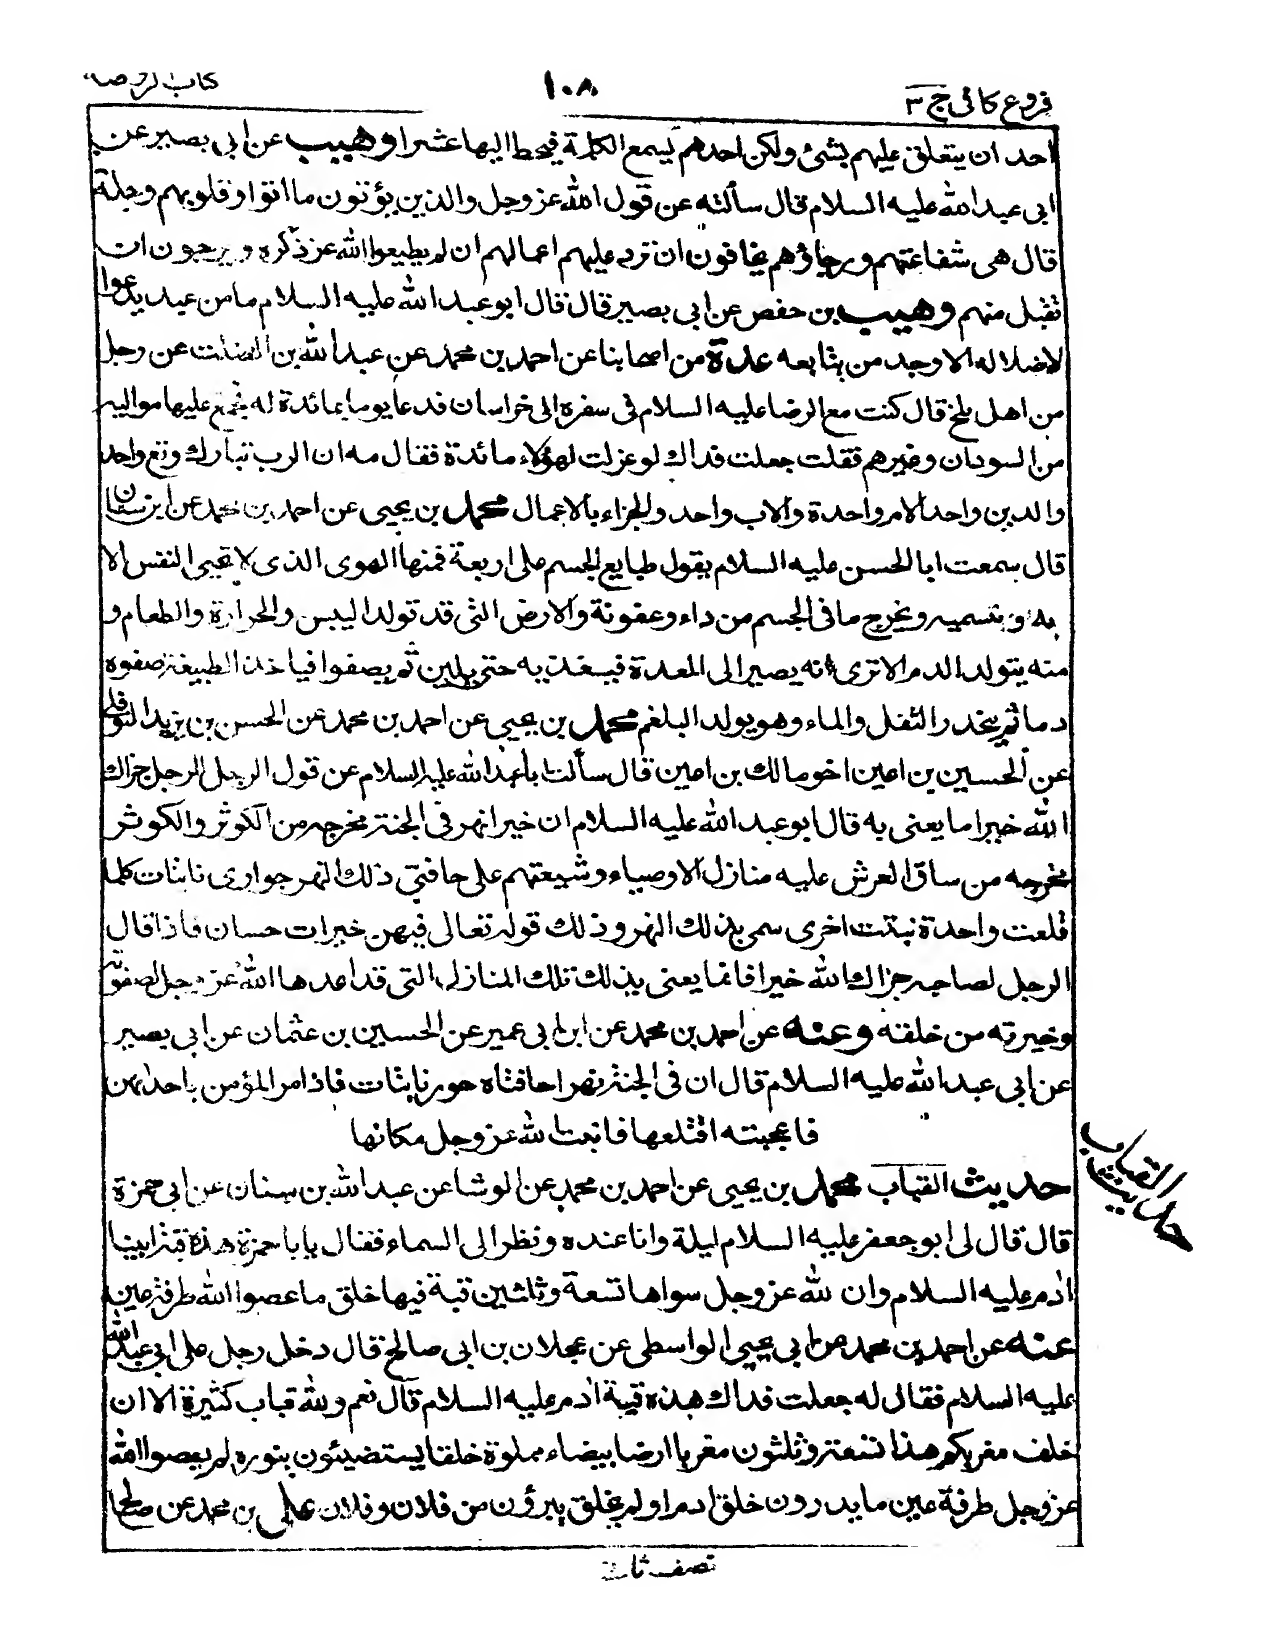 كتاب الروضة
١٠٨
فروع كافى ج ٣
احد ان يتعلق عليهم بشئ ولكن احدهم يسمع الكلمة فيحط اليها عشرا وهيب عن ابى بصير عن
ابى عبد الله عليه السلام قال سألته عن قول الله عز وجل والذين يؤتون ما اتوا وقلوبهم وجلة
قال هى شفاعتهم ورجاؤهم يخافون ان ترد عليهم اعمالهم ان لم يطيعوا الله عز ذكره ويرجون ان
تقبل منهم وهيب بن حفص عن ابى بصير قال قال ابو عبد الله عليه السلام ما من عبد يدعوا
لاضلاله الا وجد من يتابعه عدة من اصحابنا عن احمد بن محمد عن عبد الله بن الصلت عن رجل
من اهل بلخ قال كنت مع الرضا عليه السلام فى سفره الى خراسان فدعا يوما بمائدة له فجمع عليها مواليه
من السودان وغيرهم فقلت جعلت فداك لو عزلت لهؤلاء مائدة فقال مه ان الرب تبارك وتع واحد
والدين واحد الامر واحدة والاب واحد والجزاء بالاعمال محمد بن يحيى عن احمد بن محمد عن ابن سنان
قال سمعت ابا الحسن عليه السلام يقول طبايع الجسم على اربعة فمنها الهوى الذى لا تحيى النفس الا
به وبنسميه ويخرج ما فى الجسم من داء وعفونة والارض التى قد تولد اليبس والحرارة والطعام و
منه يتولد الدم الا ترى انه يصير الى المعدة فيغذيه حتى يلين ثم يصفوا فياخذ الطبيعة صفوه
دما ثم ينحدر الثفل والماء وهو يولد البلغم محمد بن يحيى عن احمد بن محمد عن الحسن بن يزيد النوفلى
عن الحسين بن اعين اخو مالك بن اعين قال سألت ابا عبد الله عليه السلام عن قول الرجل الرجل جزاك
الله خيرا ما يعنى به قال ابو عبد الله عليه السلام ان خيرا نهر فى الجنة مخرجه من الكوثر والكوثر
مخرجه من ساق العرش عليه منازل الاوصياء وشيعتهم على حافتى ذلك النهر جوارى نابتات كلما
قلعت واحدة نبتت اخرى سمى بذلك النهر وذلك قوله تعالى فيهن خيرات حسان فاذا قال
الرجل لصاحبه جزاك الله خيرا فانما يعنى بذلك تلك المنازل التى قد اعدها الله عز وجل لصفوته
وخيرته من خلقه وعنه عن احمد بن محمد عن ابن ابى عمير عن الحسين بن عثمان عن ابى بصير
عن ابى عبد الله عليه السلام قال ان فى الجنة نهرا حافتاه حور نابتات فاذا مر المؤمن باحدهن
فاعجبته اقتلعها فانبت الله عز وجل مكانها
حديث القباب
حديث القباب محمد بن يحيى عن احمد بن محمد عن الوشا عن عبد الله بن سنان عن ابى حمزة
قال قال لى ابو جعفر عليه السلام ليلة وانا عنده ونظر الى السماء فقال يا با حمزة هذه قبة ابينا
ادم عليه السلام وان لله عز وجل سواها تسعة وثلثين قبة فيها خلق ما عصوا الله طرفة عين
عنه عن احمد بن محمد عن ابى يحيى الواسطى عن عجلان بن ابى صالح قال دخل رجل على ابى عبد الله
عليه السلام فقال له جعلت فداك هذه قبة ادم عليه السلام قال نعم ولله قباب كثيرة الا ان
خلف مغربكم هذا تسعة وثلثون مغربا ارضا بيضاء مملوة خلقا يستضيئون بنوره لم يعصوا الله
عز وجل طرفة عين ما يدرون خلق ادم او لم يخلق يبرؤن من فلان وفلان على بن محمد عن صالح
نصف ثا